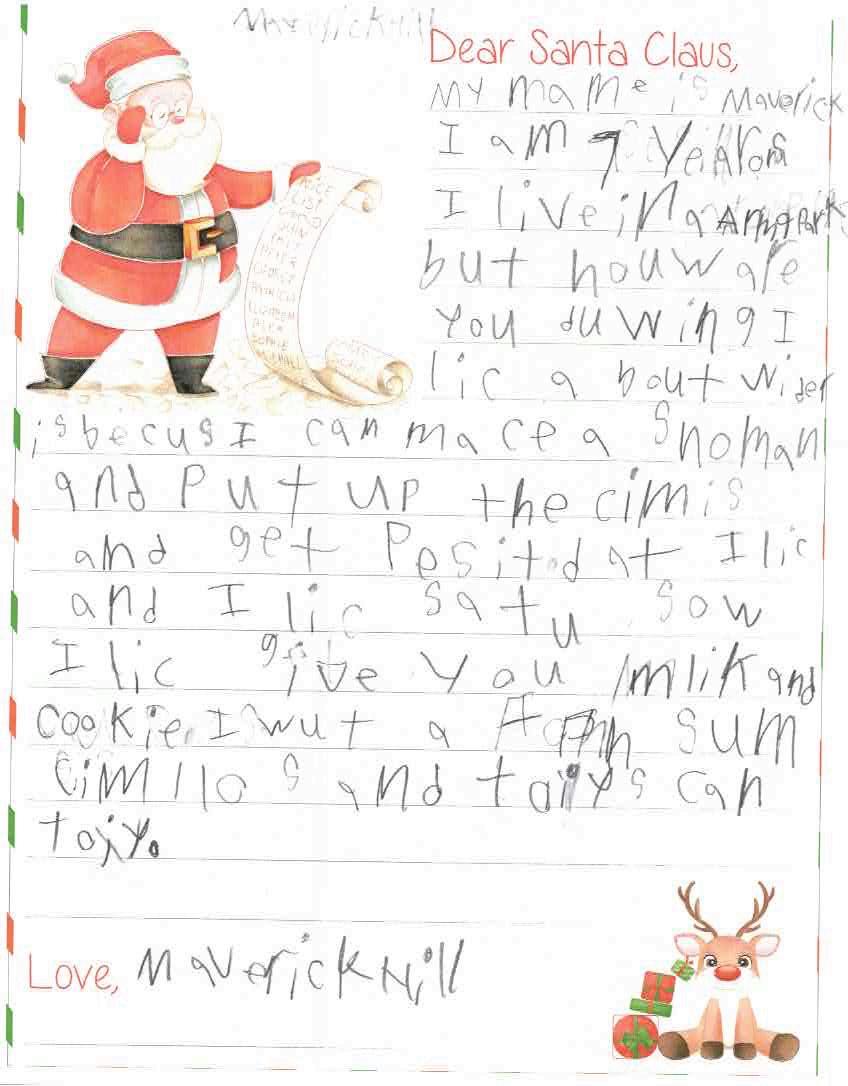 Maverick Hill
Dear Santa Claus,
My mame is Maverick
I am 7 Years
I live in a
but houw are
you duwing I
lic a bout wider
is becus I can mace a Snoman
and Put up the cimis
and get Pesit dat I lic
and I lic satu sow
I lic give you milik and
cookie. I wut a sum
and toiys can
toiy.
NICE
LIST
Love, Maverick Hill